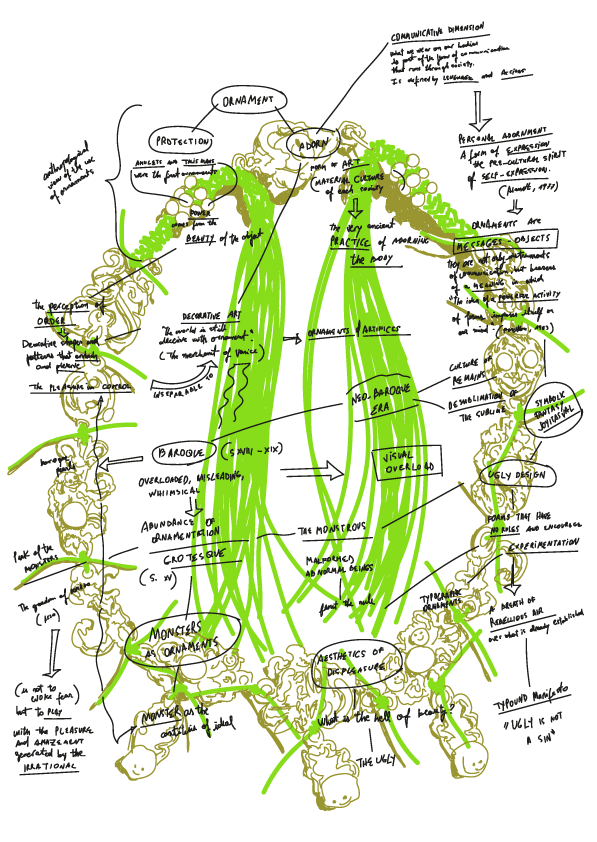 COMMUNICATIVE DIMENSION
what we wear on our bodies
is part of the form of communication
that runs through society.
It is defined by LANGUAGE and Actions
ORNAMENT
PROTECTION
ADORN
anthropological
view of the use
of ornaments
AMULETS and TALISMANS
were the first ornaments
POWER
comes from the
BEAUTY of the object
FORM OF ART
(MATERIAL CULTURE
of each society
The very ancient
PRACTICE of ADORNING
the BODY
PERSONAL ADORNMENT
A form of EXPRESSION
the PRE-CULTURAL SPIRIT
of SELF-EXPRESSION.
ORNAMENTS are
MESSAGES-OBJECTS
they are not only instruments
of communication, but bearers
of a MEANING which
"The idea of a POWERFUL ACTIVITY
of forms imposes itself on
our mind"
the perception of
ORDER
is
Decorative shapes and
patterns that
and please
The PLEASURE in CONTROL
DECORATIVE ART
"The world is still
deceive with ornament"
(The merchant of Venice)
ORNAMENTS & ARTIFICES
INSEPARABLE TO
CULTURE OF
REMAINS
NEO-BAROQUE
ERA
DESUBLIMATION OF
THE SUBLIME
SYMBOLIC
FANTASY
JOYICAL
BAROQUE (S XVIII - XIX)
baroque
pearls
OVERLOADED, MISLEADING,
WHIMSICAL
VISUAL
OVERLOAD
UGLY DESIGN
ABUNDANCE OF
ORNAMENTATION
GROTESQUE
(S. XV)
THE MONSTROUS
MALFORMED
ABNORMAL BEINGS
FORMS THEY HAVE
NO RULES AND ENCOURAGE
EXPERIMENTATION
Park of the
MONSTERS
The garden of
TYPOGRAPHIC
ORNAMENTS
A BREATH OF
REBELLIOUS AIR
over what is already established
MONSTERS
AS ORNAMENTS
AESTHETICS OF
DISPLEASURE
(is not to
evoke fear)
but to PLAY
with the PLEASURE
and AMAZEMENT
generated by the
IRRATIONAL
MONSTER as the
of ideal
What is the hell of beauty?
THE UGLY
TYPOUND Manifesto
"UGLY IS NOT
A SIN"